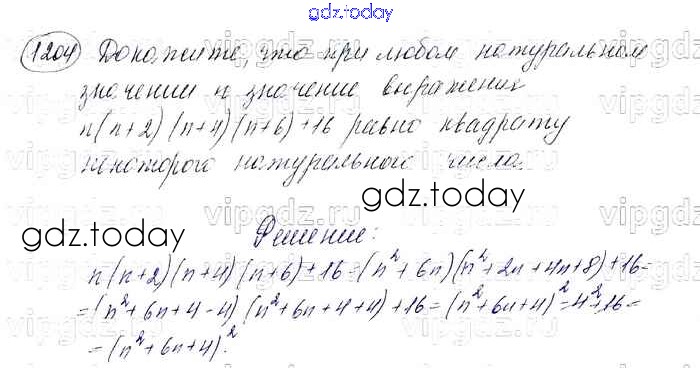 gdz.today
1204 Докажите, что при любом натуральном
значении n значение выражения
n(n+2)(n+4)(n+6)+16 равно квадрату
некоторого натурального числа.
gdz.today
gdz.today
Решение:
n(n+2)(n+4)(n+6)+16=(n²+6n)(n²+2n+4n+8)+16=
=(n²+6n+4-4)(n²+6n+4+4)+16=(n²+6n+4)²-4²+16=
=(n²+6n+4)².